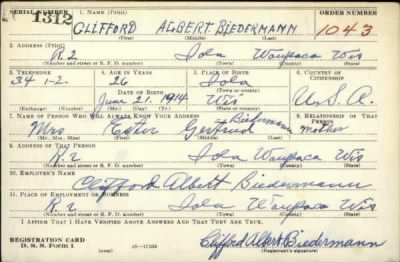 SERIAL NUMBER 1. NAME (Print) ORDER NUMBER
1312 CLIFFORD ALBERT BIEDERMANN 1043
(First) (Middle) (Last)
2. ADDRESS (Print)
R.2 Iola Waupaca Wis
(Number and street or R. F. D. number) (Town) (County) (State)
3. TELEPHONE 4. AGE IN YEARS 5. PLACE OF BIRTH 6. COUNTRY OF CITIZENSHIP
34 1-2- 26 Iola
DATE OF BIRTH (Town or county)
June 21. 1914 Wis U.S.A.
(Exchange) (Number) (Mo.) (Day) (Yr.) (State or country)
7. NAME OF PERSON WHO WILL ALWAYS KNOW YOUR ADDRESS 8. RELATIONSHIP OF THAT PERSON
Mrs Ester Gertrud Biedermann mother
(Mr., Mrs., Miss) (First) (Middle) (Last)
9. ADDRESS OF THAT PERSON
R.2 Iola Waupaca Wis
(Number and street or R. F. D. number) (Town) (County) (State)
10. EMPLOYER'S NAME
Clifford Albert Biedermann
11. PLACE OF EMPLOYMENT OR BUSINESS
R.2 Iola Waupaca Wis
(Number and street or R. F. D. number) (Town) (County) (State)
I AFFIRM THAT I HAVE VERIFIED ABOVE ANSWERS AND THAT THEY ARE TRUE.
REGISTRATION CARD
D. S. S. Form 1 16-17105 Clifford Albert Biedermann
(Registrant's signature)